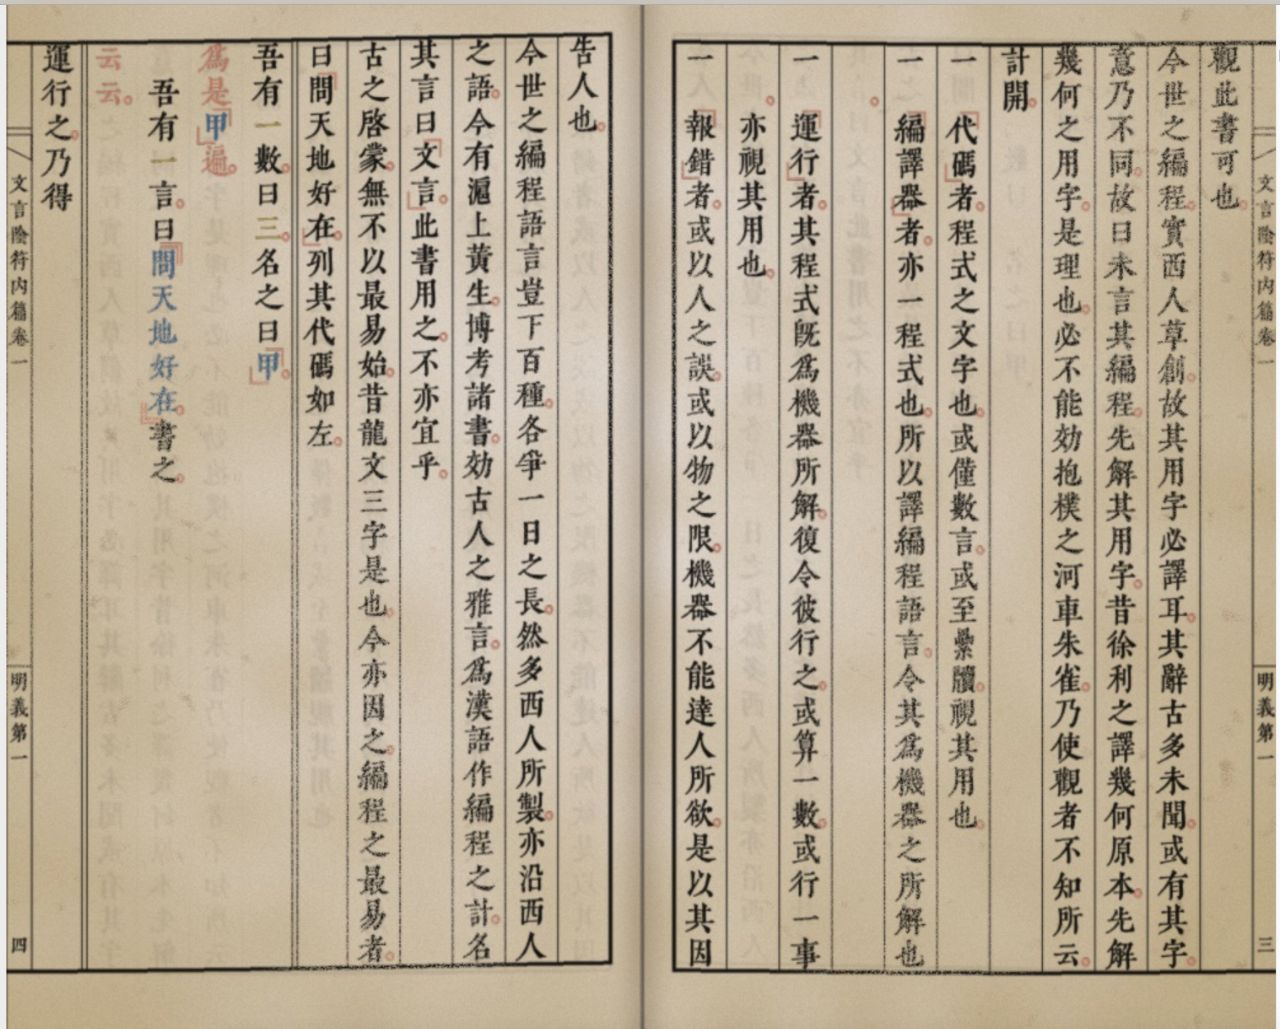 文言陰符內篇卷一
明義第一
三
觀此書可也。
今世之編程。實西人草創。故其用字必譯耳。其辭古多未聞。或有其字。
意乃不同。故曰未言其編程。先解其用字。昔徐利之譯幾何原本。先解
幾何之用字。是理也。必不能効抱樸之河車朱雀。乃使觀者不知所云。
計開。
一「代碼」者。程式之文字也。或僅數言。或至纍牘。視其用也。
一「編譯器」者。亦一程式也。所以譯編程語言。令其為機器之所解也
一「運行」者。其程式既為機器所解。復令彼行之。或算一數。或行一事
亦視其用也。
一「報錯」者。或以人之誤。或以物之限。機器不能達人所欲。是以其因
告人也。
今世之編程語言豈下百種。各爭一日之長。然多西人所製。亦沿西人
之語。今有滬上黃生。博考諸書。効古人之雅言。為漢語作編程之計。名
其言曰「文言」。此書用之。不亦宜乎。
古之啓蒙。無不以最易始。昔龍文三字是也。今亦因之。編程之最易者。
曰「問天地好在」。列其代碼如左。
吾有一數。曰三。名之曰「甲」。
為是「甲」遍。
吾有一言。曰「「問天地好在。」」書之。
云云。
運行之。乃得
文言陰符內篇卷一
明義第一
四